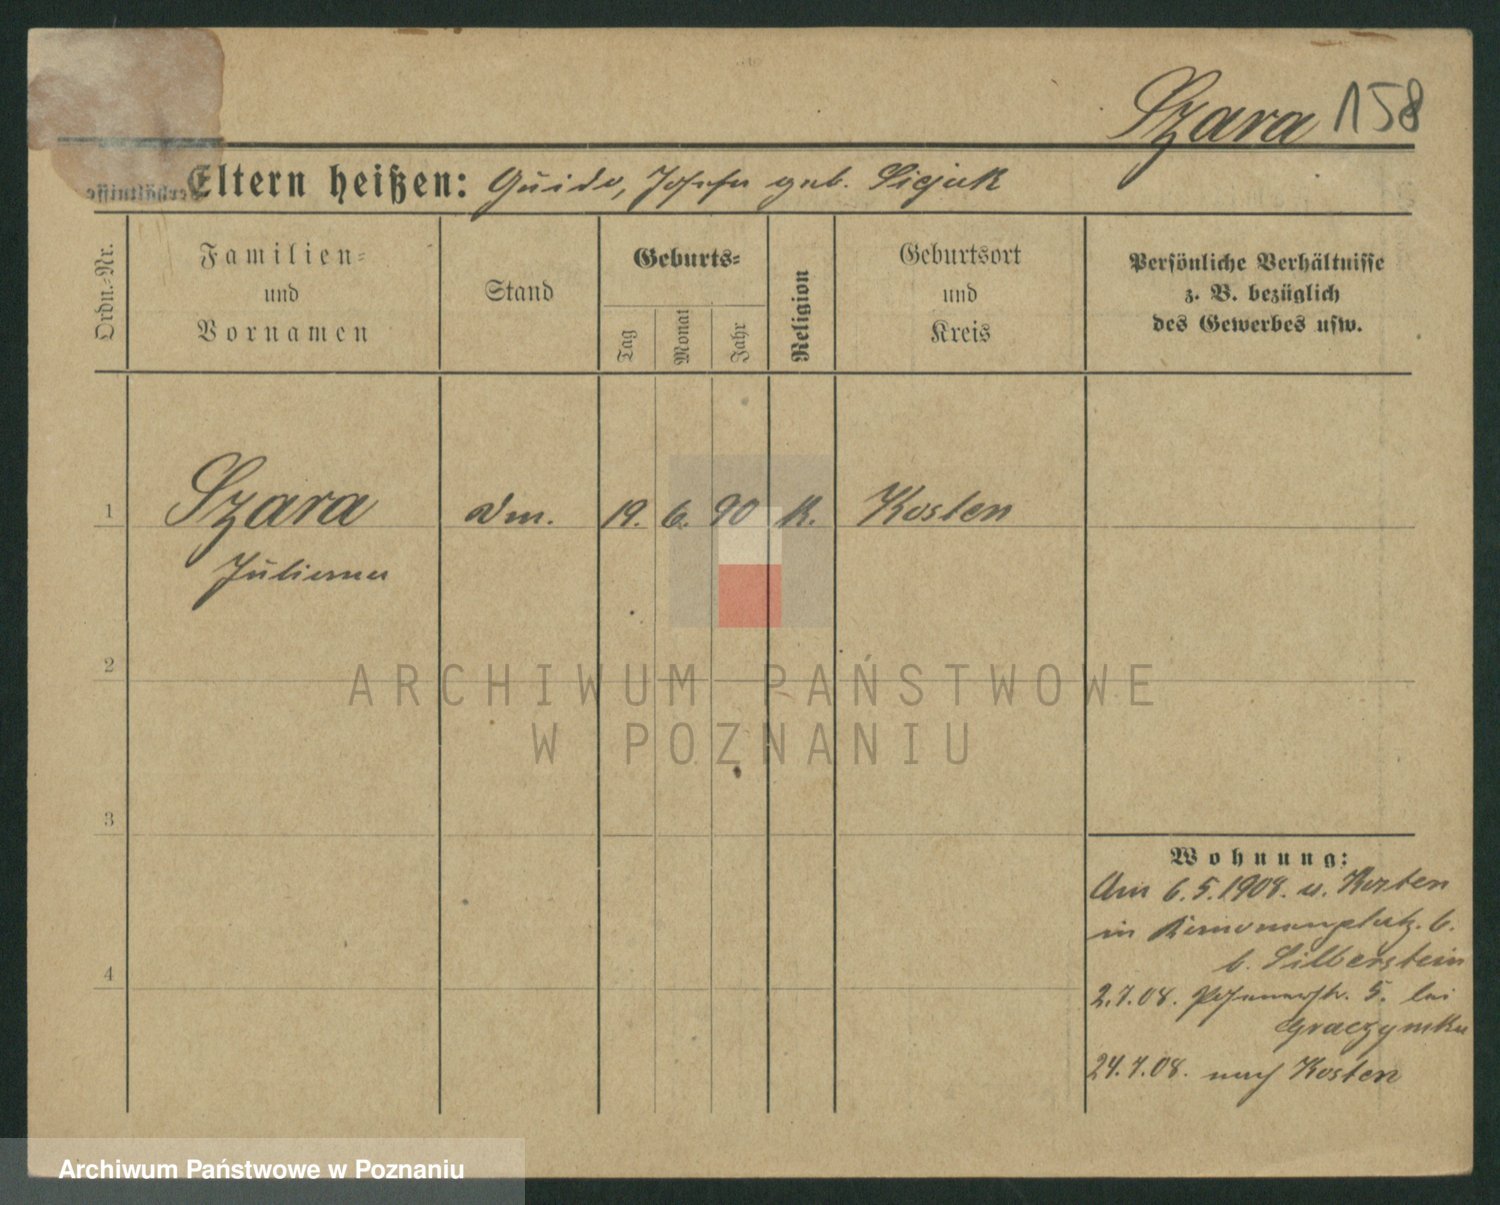 Szara 158
Eltern heißen: Guido, Josefa geb. Sicjak
Ordn.-Nr.
Familien-
und
Vornamen
Stand
Geburts-
Tag
Monat
Jahr
Religion
Geburtsort
und
Kreis
Persönliche Verhältnisse
z. B. bezüglich
des Gewerbes usw.
1 Szara 19. 6. 90 K. Kosten
Julianna
2
ARCHIWUM PAŃSTWOWE
W POZNANIU
3
Wohnung:
Am 6.5.1908. v. Kosten
in 6.
b. Silberstein
4
2.7.08. Posenerstr. 5. bei
24.7.08. nach Kosten
Archiwum Państwowe w Poznaniu